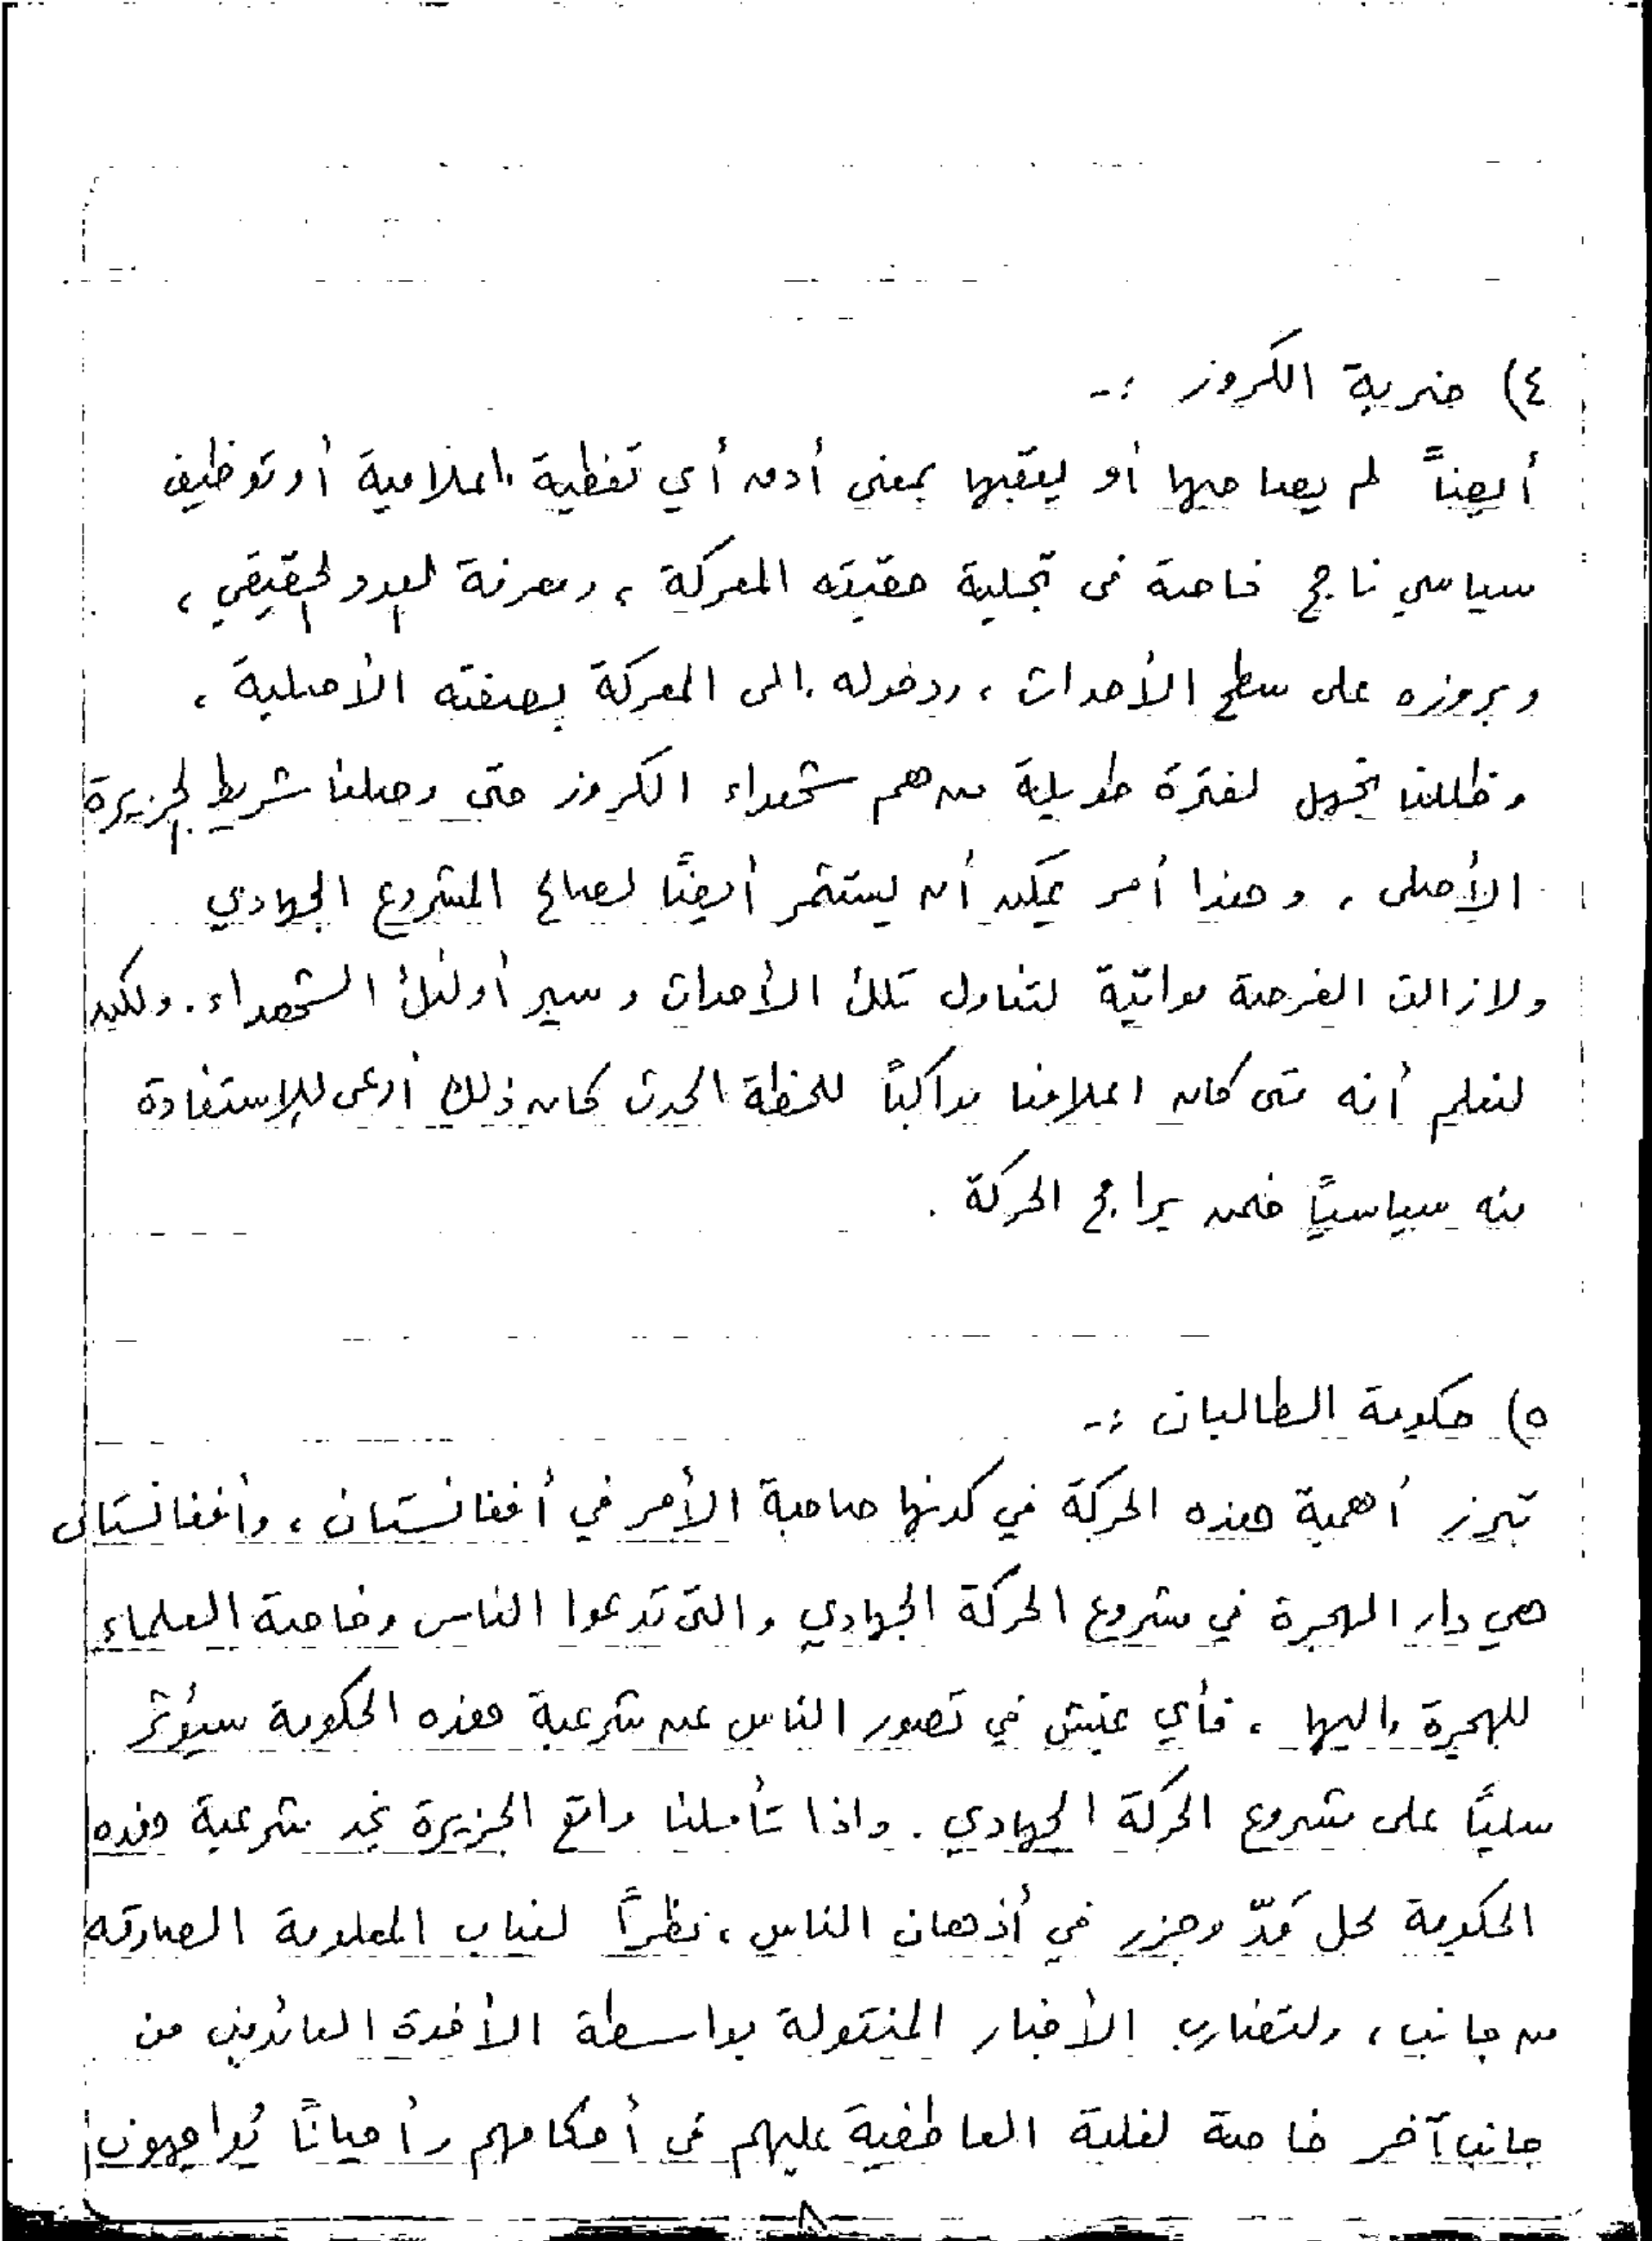 ٤) ضربة الكروز :-
أيضاً لم يصاحبها أو يعقبها بمعنى أدق أي تغطية إعلامية أو توظيف
سياسي ناجح خاصة في تجلية حقيقة المعركة ، ومعرفة العدو الحقيقي ،
وبروزه على سطح الأحداث ، ودخوله إلى المعركة بصفته الأصلية ،
وظللنا نجهل لفترة طويلة من هم شهداء الكروز حتى وصلنا شريط الجزيرة
الأصلي ، وهذا أمر يمكن أن يستثمر أيضًا لصالح المشروع الجهادي
ولازالت الفرصة مواتية لتناول تلك الأحداث وسير أولئك الشهداء . ولكن
لنعلم أنه متى كان اعلامنا مواكبًا للحظة الحدث كان ذلك أدعى للإستفادة
منه سياسيًا ضمن برامج الحركة .
٥) حكومة الطالبان :-
تبرز أهمية هذه الحركة في كونها صاحبة الأمر في أفغانستان ، وأفغانستان
هي دار الهجرة في مشروع الحركة الجهادي والتي تدعوا الناس وخاصة العلماء
للهجرة إليها ، فأي غبش في تصور الناس عن شرعية هذه الحكومة سيؤثر
سلبًا على مشروع الحركة الجهادي . واذا تأملنا واقع الجزيرة نجد شرعية هذه
الحكومة محل مَدّ وجزر في أذهان الناس ، نظرًا لغياب المعلومة الصادقه
من جانب ، ولتضارب الأخبار المنقولة بواسطة الأخوة العائدين من
جانب آخر خاصة لغلبة العاطفية عليهم في أحكامهم وأحيانًا يُواجهون
٨